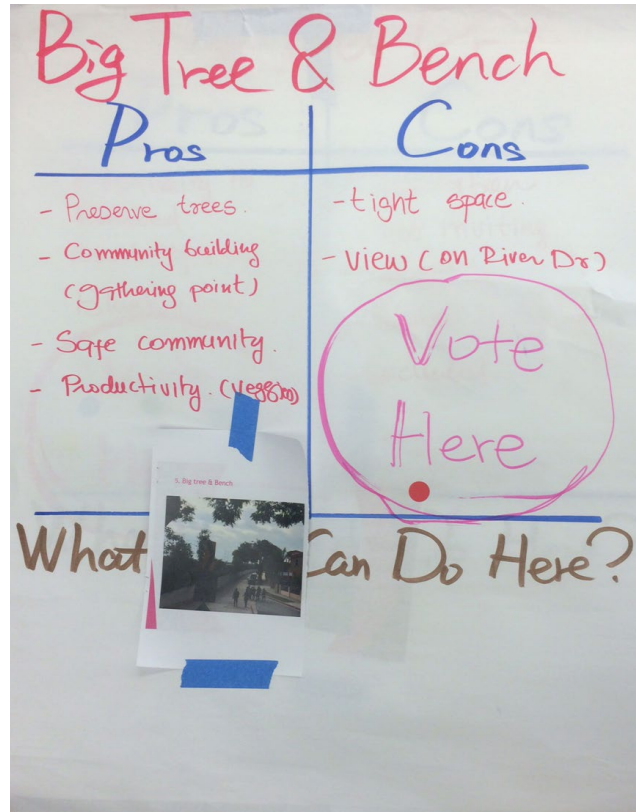 Big Tree & Bench
Pros
- Preserve trees.
- Community building
(gathering point)
- Safe community.
- Productivity. (veggies)
Cons
- tight space.
- View (on River Dr)
Vote
Here
What Can Do Here?
5. Big tree & Bench